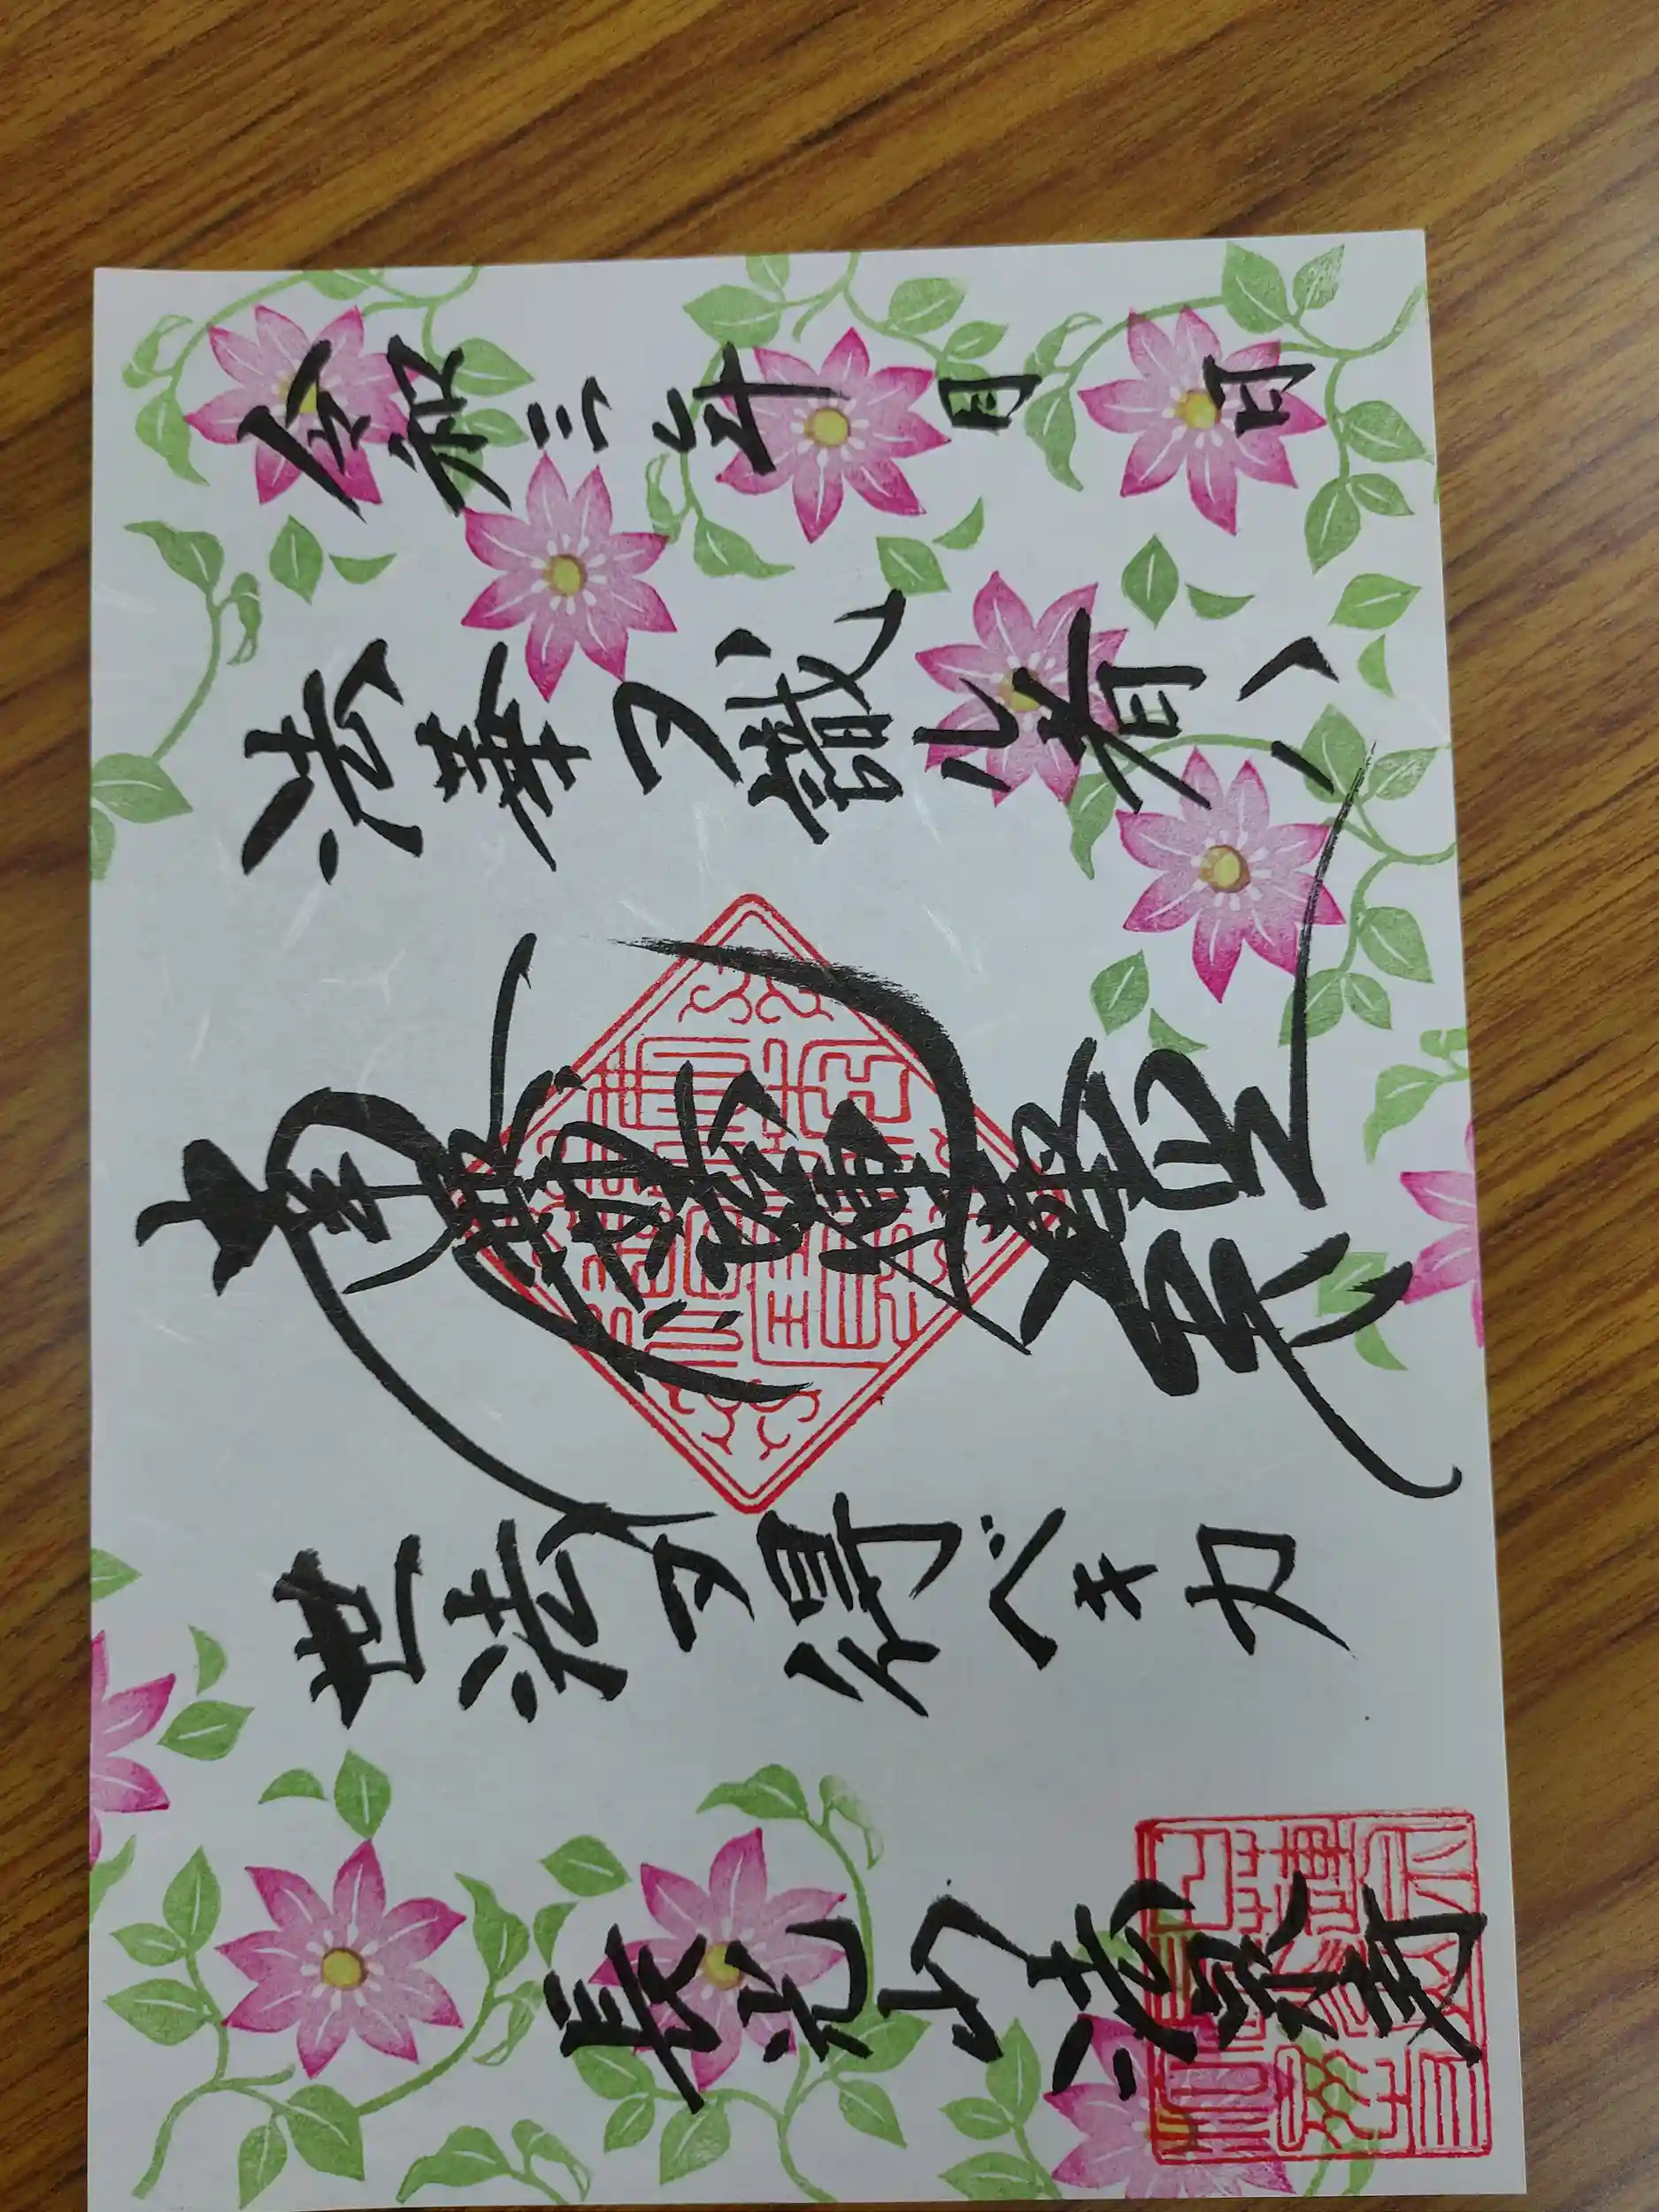 令和三年 月 日
法華ヲ識ル者ハ
南無妙法蓮華経
世法ヲ得ベキカ
長光山法宗寺